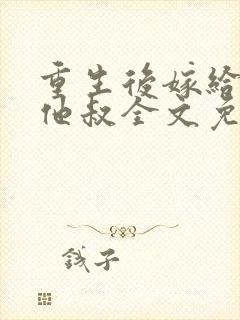 重生後嫁給
他叔全文免
錢子